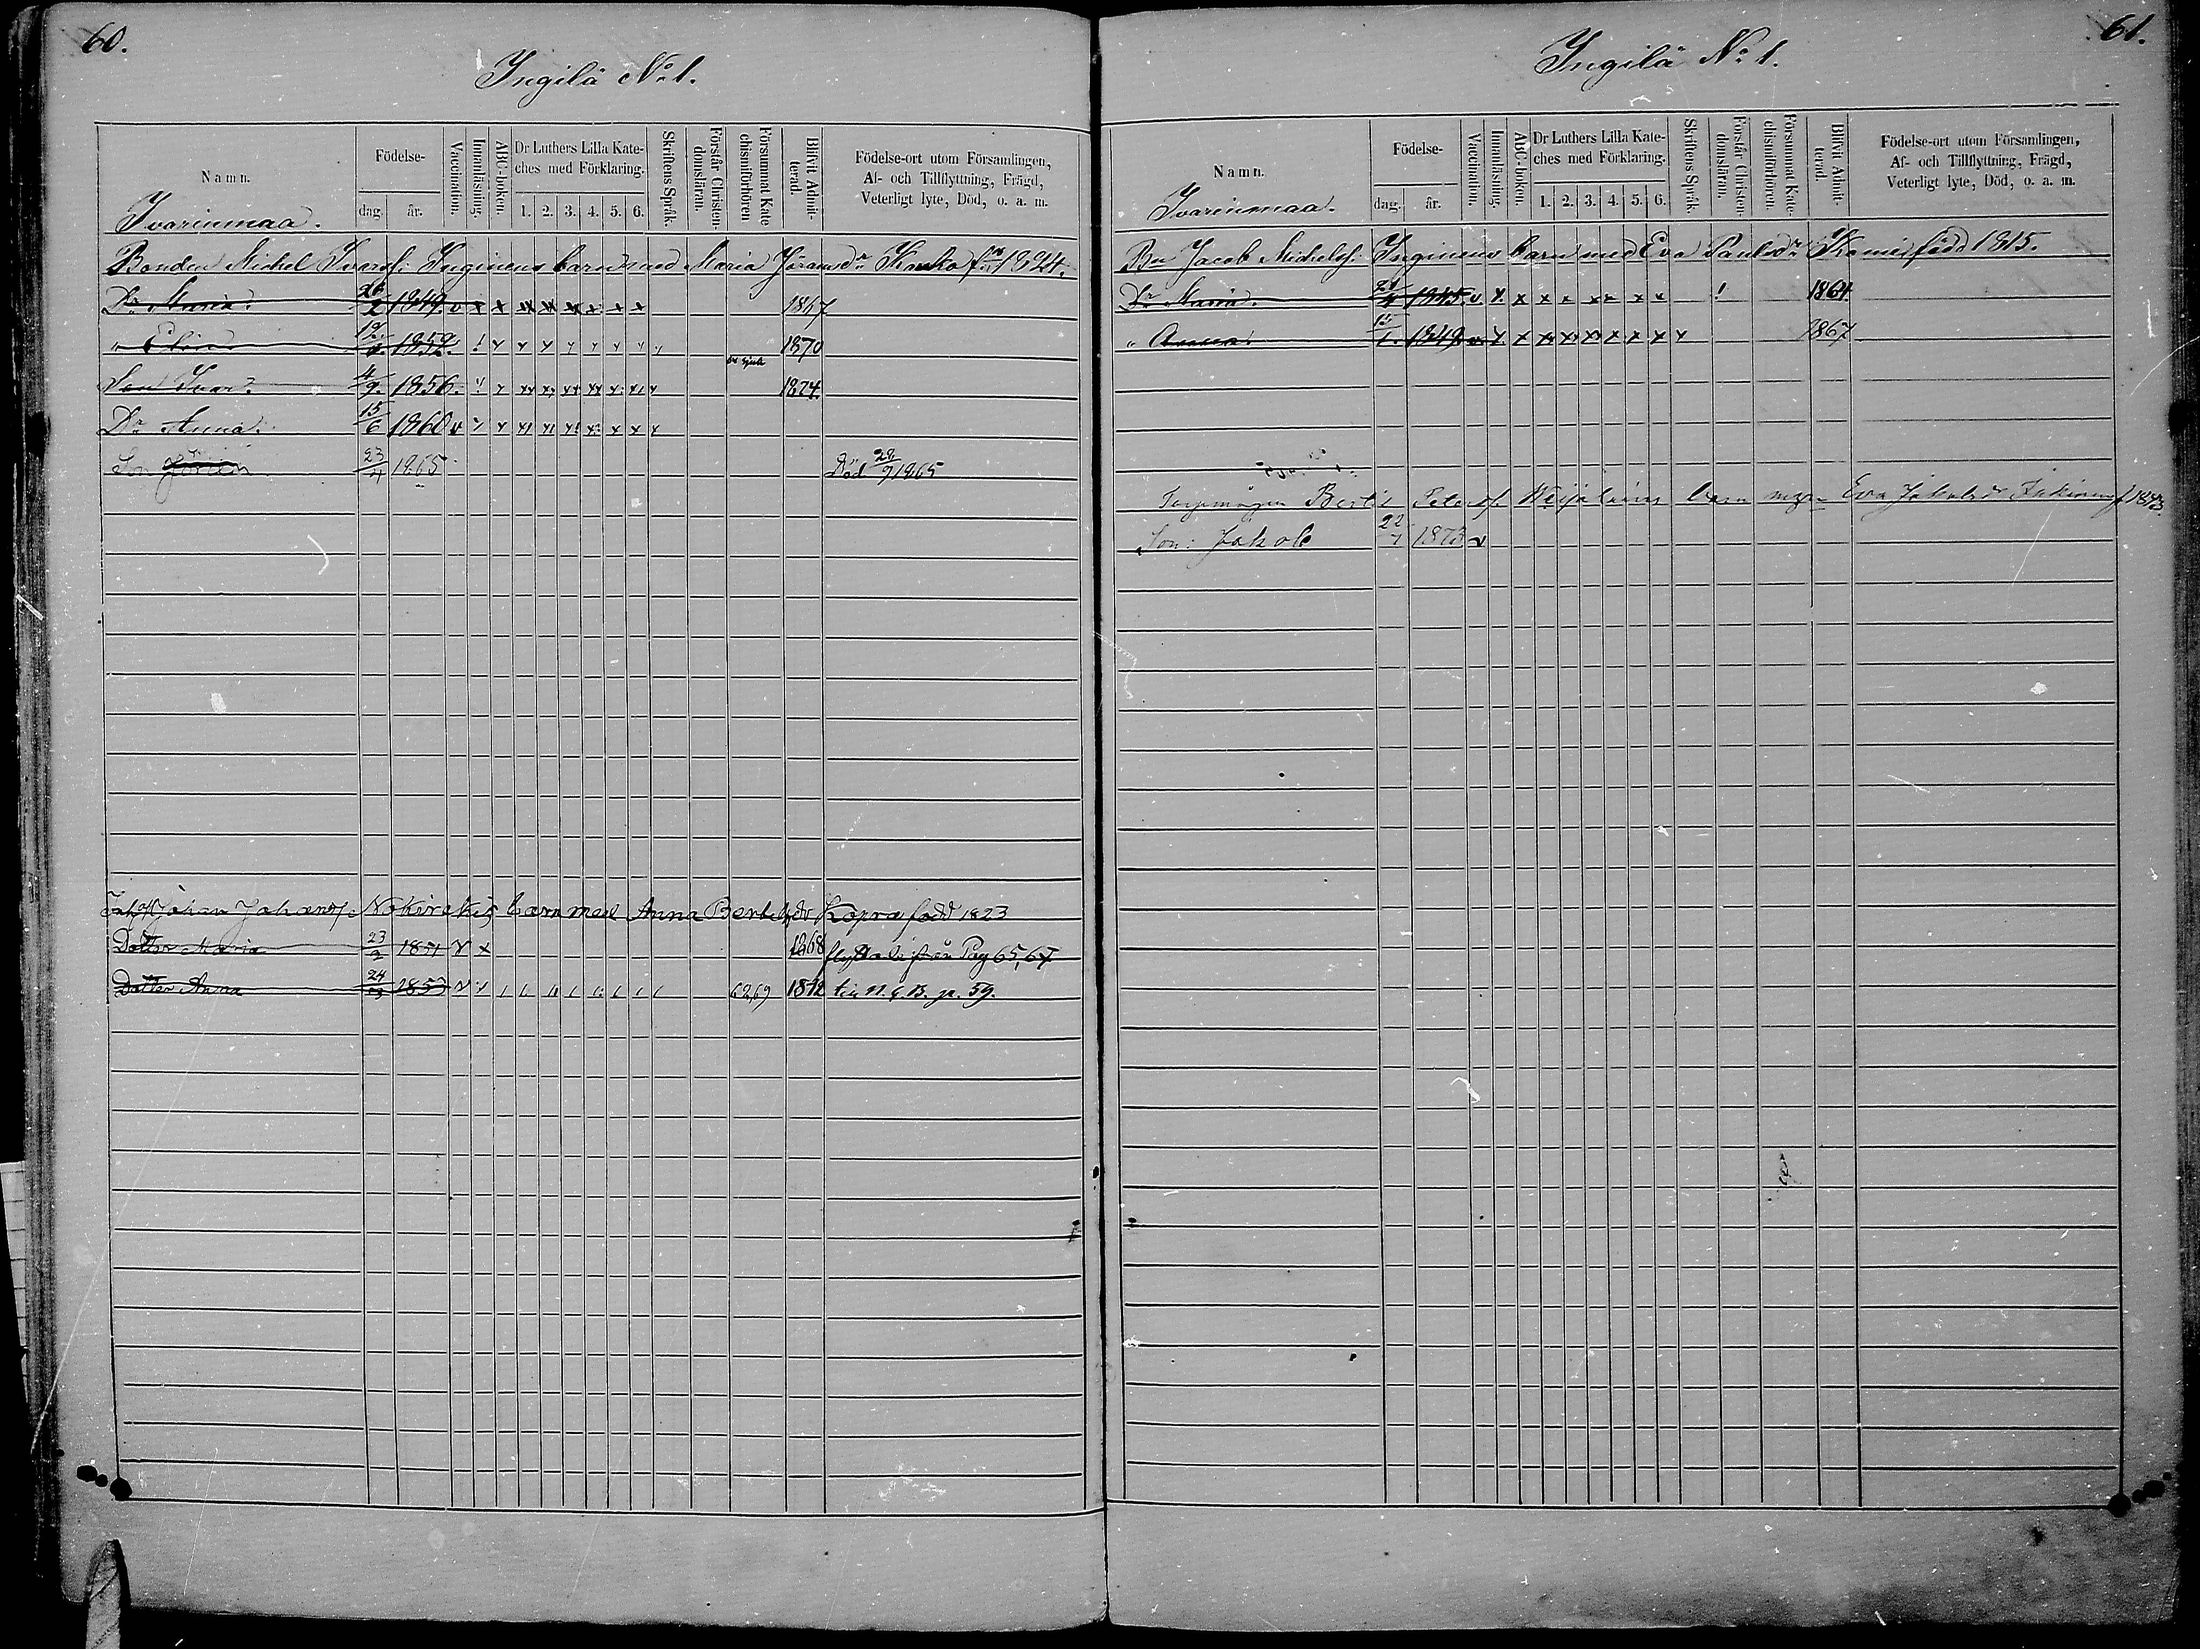 60.
Ingilä No 1.
Namn.
Födelse-
dag.
år.
Vaccination.
Innanläsning.
ABC-boken.
Dr Luthers Lilla Kate-
ches med Förklaring.
1. 2. 3. 4. 5. 6.
Skriftens Språk.
Förstår Christen-
domsläran.
Försummat Kate
chismiförhören
Blifvit Admit-
terad.
Födelse-ort utom Församlingen,
Af- och Tillflyttning, Frägd,
Veterligt lyte, Död, o. a. m.
Ivarinmaa.
Bonden Michel Ivarss: Inginens barn med Maria Göransdr 1824.
Dr Maria. 26/2 1849. v x x x x x x x x 1867
19/ 1852. ! x x x x x x x x 1870
Son Ivar. 4/9. 1856. 1874.
Dr Anna. 15/6 1860 v
Son 23/4 1865 Död 28/9 1865
Johan Johanss. barn med Anna Bertelsdr född 1823
Dotter Maria 23/2 1851 v x 1868 från Pag 65, 67
Dotter Anna 24/ 1853 62,69 1872 p. 59.
61.
Ingilä No 1.
Namn.
Födelse-
dag.
år.
Vaccination.
Innanläsning.
ABC-boken.
Dr Luthers Lilla Kate-
ches med Förklaring.
1. 2. 3. 4. 5. 6.
Skriftens Språk.
Förstår Christen-
domsläran.
Försummat Kate-
chismiförhören.
Blifvit Admit-
terad.
Födelse-ort utom Församlingen,
Af- och Tillflyttning, Frägd,
Veterligt lyte, Död, o. a. m.
Ivarinmaa.
Bn Jacob Michelss: Inginens barn med Eva Paulsdr född 1815.
Dr Maria. 1845. v x x x x x x x x ! 1864
" Anna. 1849. x x x x x x x x 1867
Bertil Peterss. barn Eva Jakobsdr
Son: Jakob 22/7 1873 v